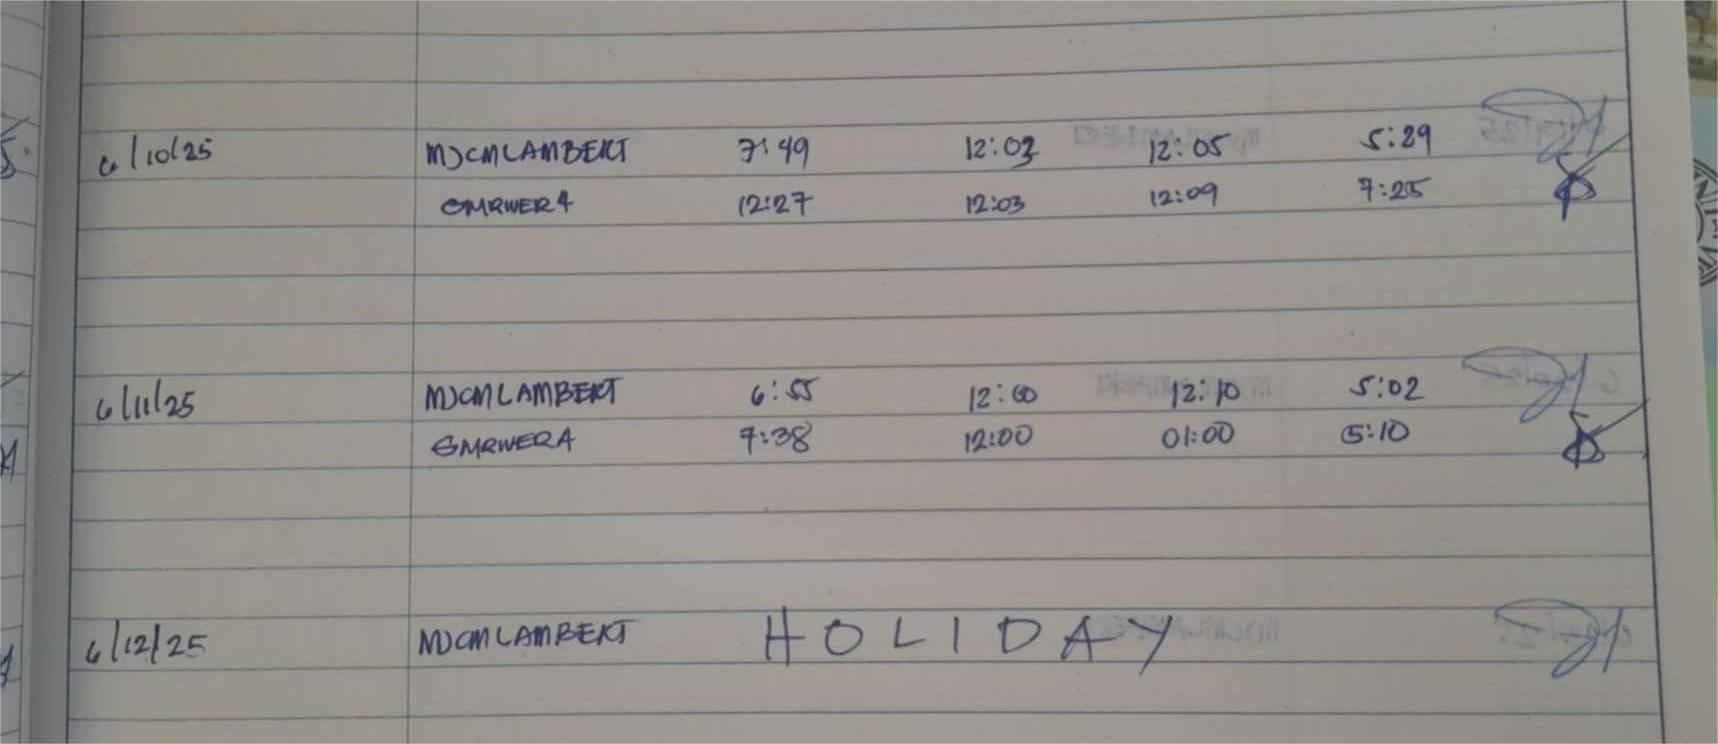 6/10/25 MJCMLAMBERT 7:49 12:03 12:05 5:29
GMRWERA 12:27 12:03 12:09 7:25
6/11/25 MJCMLAMBERT 6:55 12:00 12:10 5:02
GMRWERA 7:38 12:00 01:00 5:10
6/12/25 MJCMLAMBERT HOLIDAY